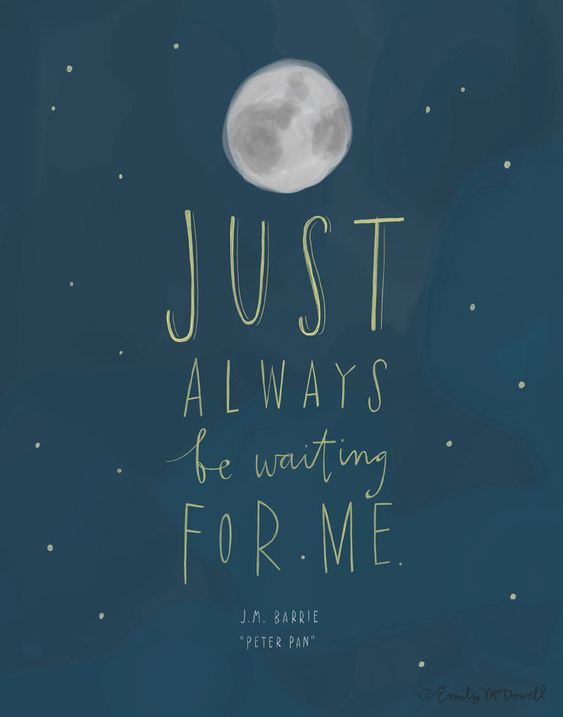 JUST
ALWAYS
be waiting
FOR.ME.
J.M. BARRIE
"PETER PAN"
© Emily McDowell